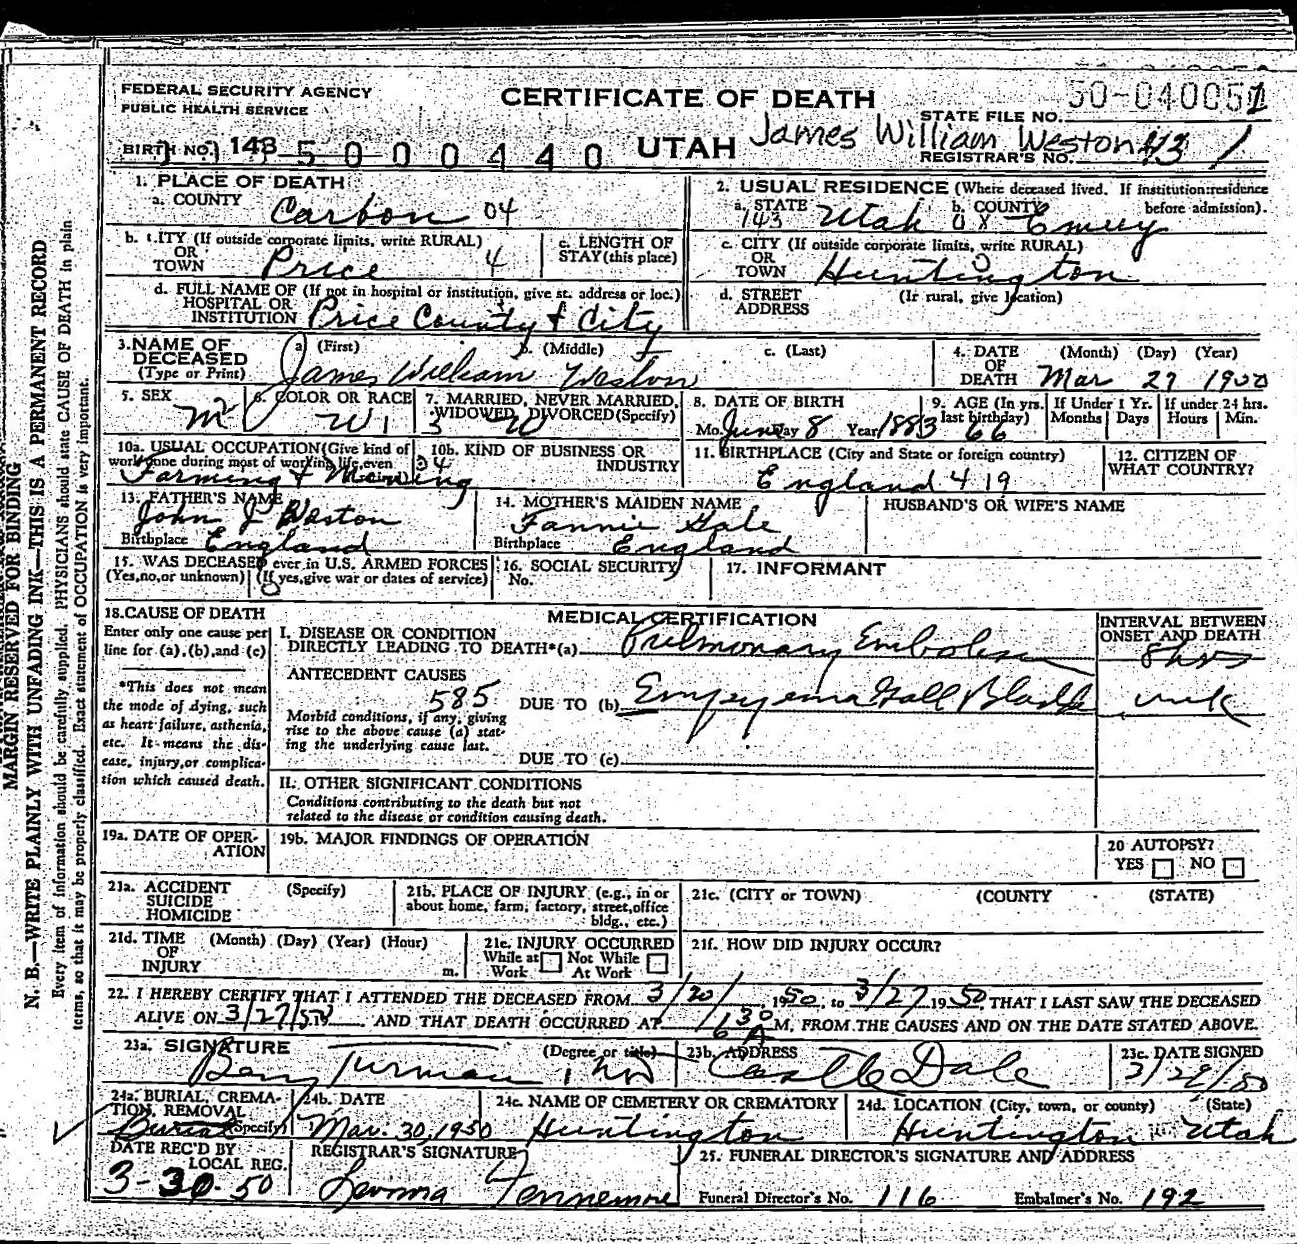 FEDERAL SECURITY AGENCY
PUBLIC HEALTH SERVICE
CERTIFICATE OF DEATH
50-040051
STATE FILE NO.
BIRTH NO. 143
5 0 0 0 4 4 0
UTAH
James William Weston
REGISTRAR'S NO. 43 1
MARGIN RESERVED FOR BINDING
N. B.—WRITE PLAINLY WITH UNFADING INK—THIS IS A PERMANENT RECORD
Every item of information should be carefully supplied. PHYSICIANS should state CAUSE OF DEATH in plain
terms, so that it may be properly classified. Exact statement of OCCUPATION is very important.
1. PLACE OF DEATH
a. COUNTY Carbon 04
b. CITY (If outside corporate limits, write RURAL)
OR
TOWN Price 4
c. LENGTH OF
STAY (this place)
d. FULL NAME OF (If not in hospital or institution, give st. address or loc.)
HOSPITAL OR
INSTITUTION Price County & City
2. USUAL RESIDENCE (Where deceased lived. If institution:residence
before admission).
a. STATE 143 Utah b. COUNTY Emery
c. CITY (If outside corporate limits, write RURAL)
OR
TOWN Huntington
d. STREET (If rural, give location)
ADDRESS
3. NAME OF a (First) b. (Middle) c. (Last)
DECEASED
(Type or Print) James William Weston
4. DATE (Month) (Day) (Year)
OF
DEATH Mar 27 1950
5. SEX M
6. COLOR OR RACE W 1
7. MARRIED, NEVER MARRIED,
WIDOWED, DIVORCED (Specify)
3 W
8. DATE OF BIRTH
Mo. June Day 8 Year 1883
9. AGE (In yrs. last birthday) 66
If Under 1 Yr. Months Days
If under 24 hrs. Hours Min.
10a. USUAL OCCUPATION (Give kind of
work done during most of working life, even
Farming & Mining
10b. KIND OF BUSINESS OR
INDUSTRY
11. BIRTHPLACE (City and State or foreign country)
England 419
12. CITIZEN OF
WHAT COUNTRY?
13. FATHER'S NAME
John J Weston
Birthplace England
14. MOTHER'S MAIDEN NAME
Fannie Gale
Birthplace England
HUSBAND'S OR WIFE'S NAME
15. WAS DECEASED ever in U.S. ARMED FORCES
(Yes,no,or unknown) (If yes,give war or dates of service)
16. SOCIAL SECURITY
No.
17. INFORMANT
18. CAUSE OF DEATH
Enter only one cause per
line for (a),(b),and (c)
*This does not mean
the mode of dying, such
as heart failure, asthenia,
etc. It means the dis-
ease, injury,or complica-
tion which caused death.
MEDICAL CERTIFICATION
INTERVAL BETWEEN
ONSET AND DEATH
I. DISEASE OR CONDITION
DIRECTLY LEADING TO DEATH*(a) Pulmonary Embolism 8 hrs
ANTECEDENT CAUSES
585
DUE TO (b) Empyema Gall Bladder unk
Morbid conditions, if any, giving
rise to the above cause (a) stat-
ing the underlying cause last.
DUE TO (c)
II. OTHER SIGNIFICANT CONDITIONS
Conditions contributing to the death but not
related to the disease or condition causing death.
19a. DATE OF OPER-
ATION
19b. MAJOR FINDINGS OF OPERATION
20 AUTOPSY?
YES NO
21a. ACCIDENT (Specify)
SUICIDE
HOMICIDE
21b. PLACE OF INJURY (e.g., in or
about home, farm, factory, street,office
bldg., etc.)
21c. (CITY or TOWN) (COUNTY) (STATE)
21d. TIME (Month) (Day) (Year) (Hour)
OF
INJURY m.
21e. INJURY OCCURRED
While at Work Not While At Work
21f. HOW DID INJURY OCCUR?
22. I HEREBY CERTIFY THAT I ATTENDED THE DECEASED FROM 3/20/, 1950, to 3/27 1950, THAT I LAST SAW THE DECEASED
ALIVE ON 3/27/50 AND THAT DEATH OCCURRED AT 6 30 A M, FROM THE CAUSES AND ON THE DATE STATED ABOVE.
23a. SIGNATURE (Degree or title)
Turman, MD
23b. ADDRESS
Castle Dale
23c. DATE SIGNED
3/29/50
24a. BURIAL, CREMA-
TION, REMOVAL
(Specify) Burial
24b. DATE
Mar. 30, 1950
24c. NAME OF CEMETERY OR CREMATORY
Huntington
24d. LOCATION (City, town, or county) (State)
Huntington Utah
DATE REC'D BY
LOCAL REG.
3-30-50
REGISTRAR'S SIGNATURE
Fennemore
25. FUNERAL DIRECTOR'S SIGNATURE AND ADDRESS
Funeral Director's No. 116 Embalmer's No. 192